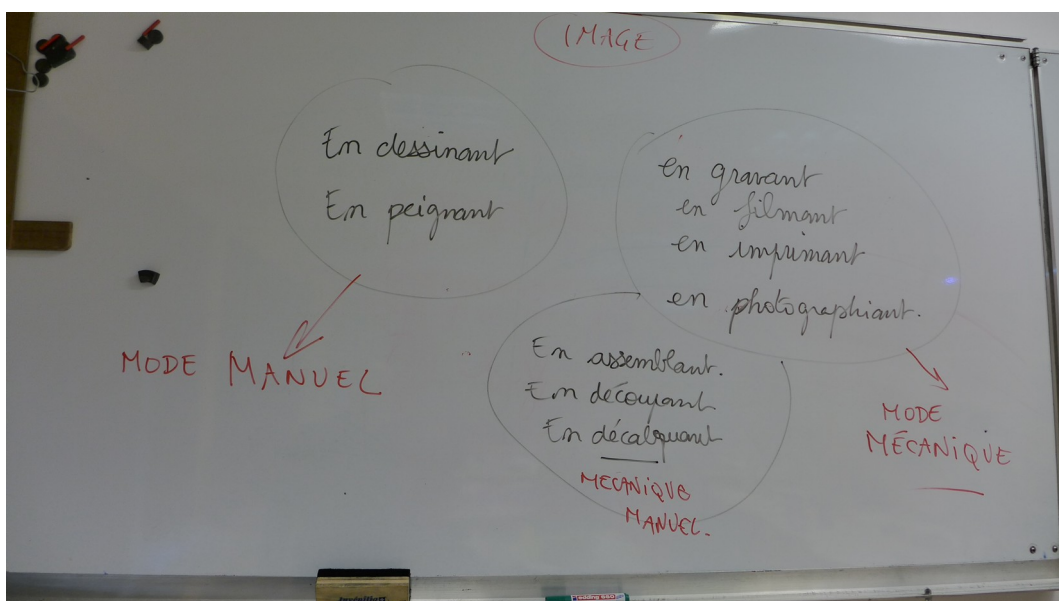 IMAGE
En dessinant
En peignant
MODE MANUEL
en gravant
en filmant
en imprimant
en photographiant.
MODE
MÉCANIQUE
En assemblant.
En découpant
En décalquant
MECANIQUE
MANUEL.
edding 660